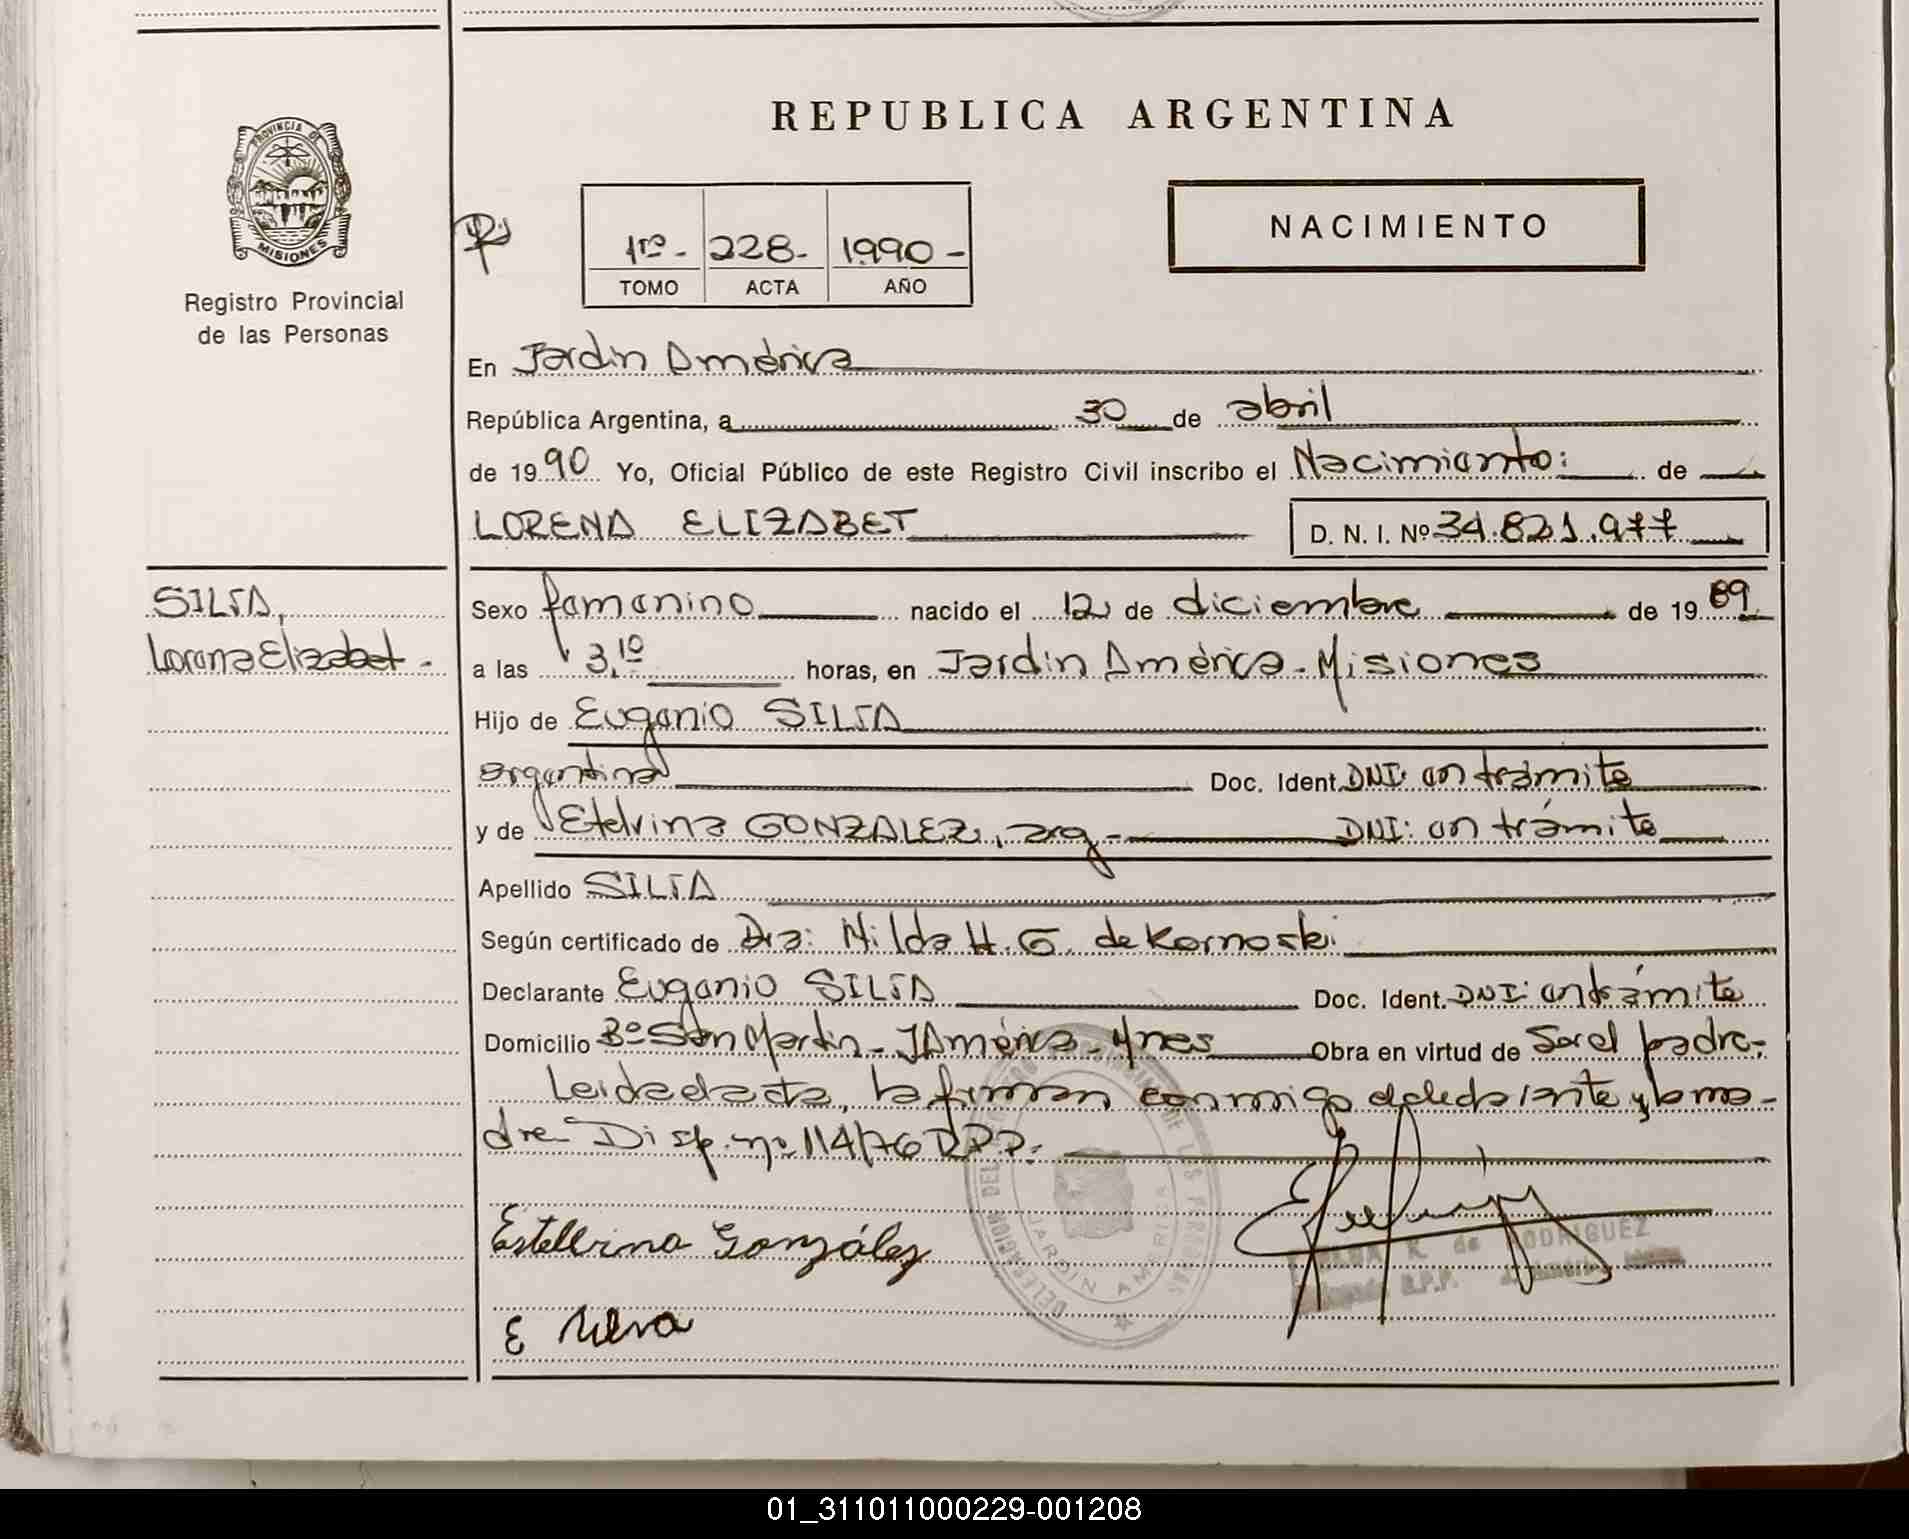 PROVINCIA DE
MISIONES
Registro Provincial
de las Personas
SILVA,
Lorena Elizabet.-
REPUBLICA ARGENTINA
NACIMIENTO
1ro.- 228.- 1990.-
TOMO ACTA AÑO
En Jardín América
República Argentina, a 30 de abril
de 1990 Yo, Oficial Público de este Registro Civil inscribo el Nacimiento: de
LORENA ELIZABET D. N. I. Nº 34.821.977
Sexo femenino nacido el 12 de diciembre de 1989
a las 3,10 horas, en Jardín América - Misiones
Hijo de Eugenio SILVA
argentina Doc. Ident. DNI: en trámite
y de Etelvina GONZALEZ, arg.- DNI: en trámite
Apellido SILVA
Según certificado de Dra: Nilda H. G. de Kornoski
Declarante Eugenio SILVA Doc. Ident. DNI: en trámite
Domicilio Bº San Martín - J América - Mnes Obra en virtud de Ser el padre.-
Leida el acta, la firman conmigo el declarante y la ma-
dre Disp. nº 114/76 RPP.
Estellvina González
E Silva
JARDIN AMERICA
K. de RODRIGUEZ
R.P.P.
01_311011000229-001208